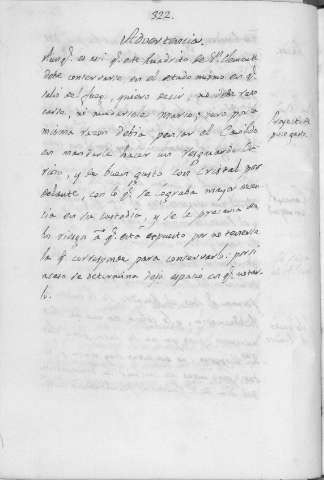 322.
Advertencia.
Aunq.e es asi q.e este quadrito de S.n
debe conservarse en el estado mismo en q.e
salio de fuego, quiero decir, no debe reto
carse, ni mudarsele marco; pero por la
misma razon debia pensar el Cavildo
en mandarle hacer un resguardo
rico, y de buen gusto con Cristal por
delante, con lo q.e se lograba mayor decen
cia en su custodia, y se le precavia de
los riesgos á q.e está expuesto por no tener
la q.e corresponde para conservarlo: por si
acaso se determina dejo espacio en q.e notar
lo.
Proyecto de